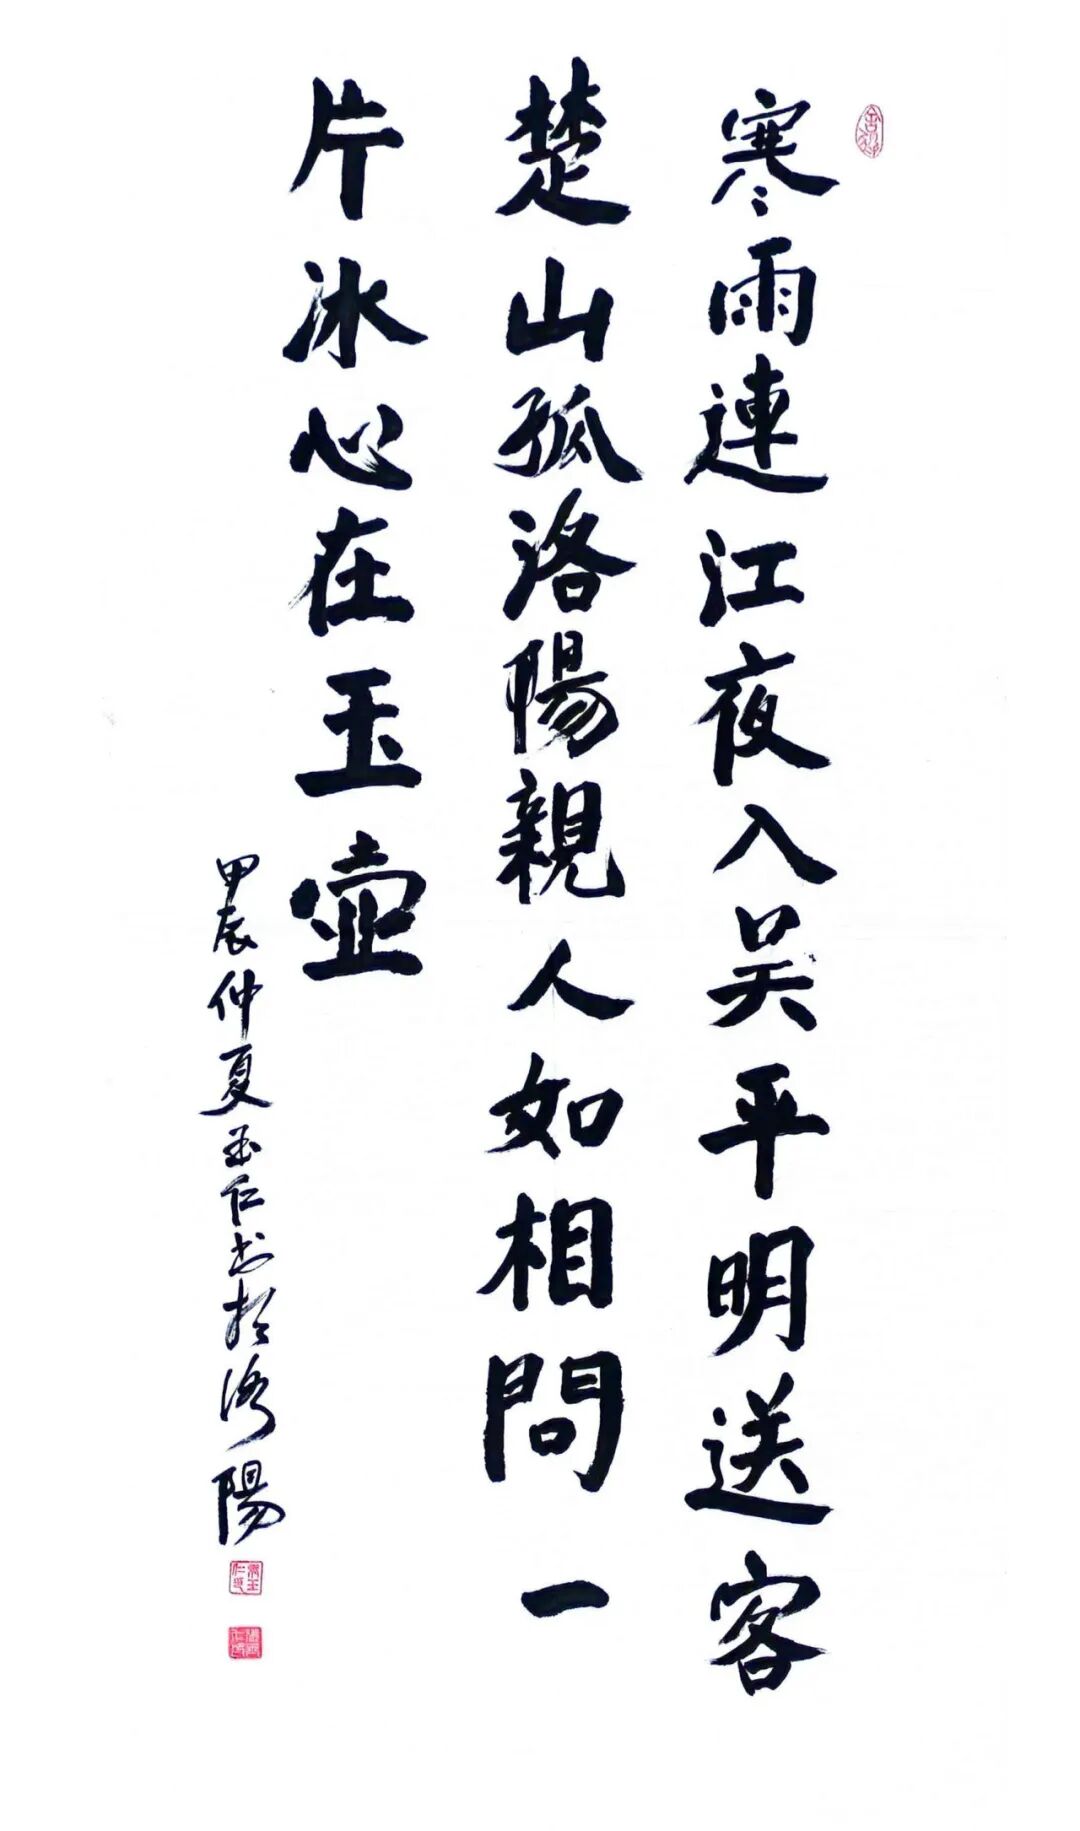 寒雨連江夜入吴平明送客
楚山孤洛陽親人如相問一
片冰心在玉壶
甲辰仲夏玉仁书於洛陽